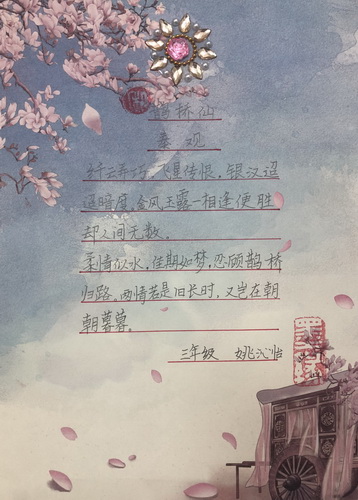 鹊桥仙
秦观
纤云弄巧,飞星传恨,银汉迢
迢暗度,金风玉露一相逢便胜
却人间无数。
柔情似水,佳期如梦,忍顾鹊桥
归路,两情若是旧长时,又岂在朝
朝暮暮。
三年级 姚沁怡